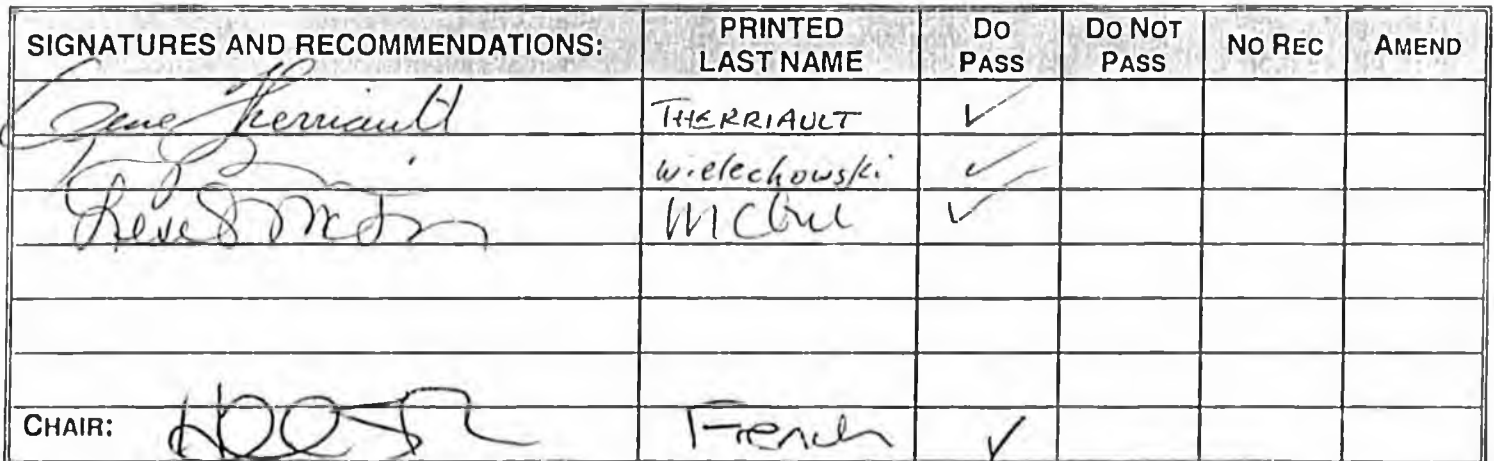 SIGNATURES AND RECOMMENDATIONS: PRINTED LAST NAME DO PASS DO NOT PASS NO REC AMEND
Gene Therriault THERRIAULT ✓
Wielechowski ✓
✓
CHAIR: French ✓